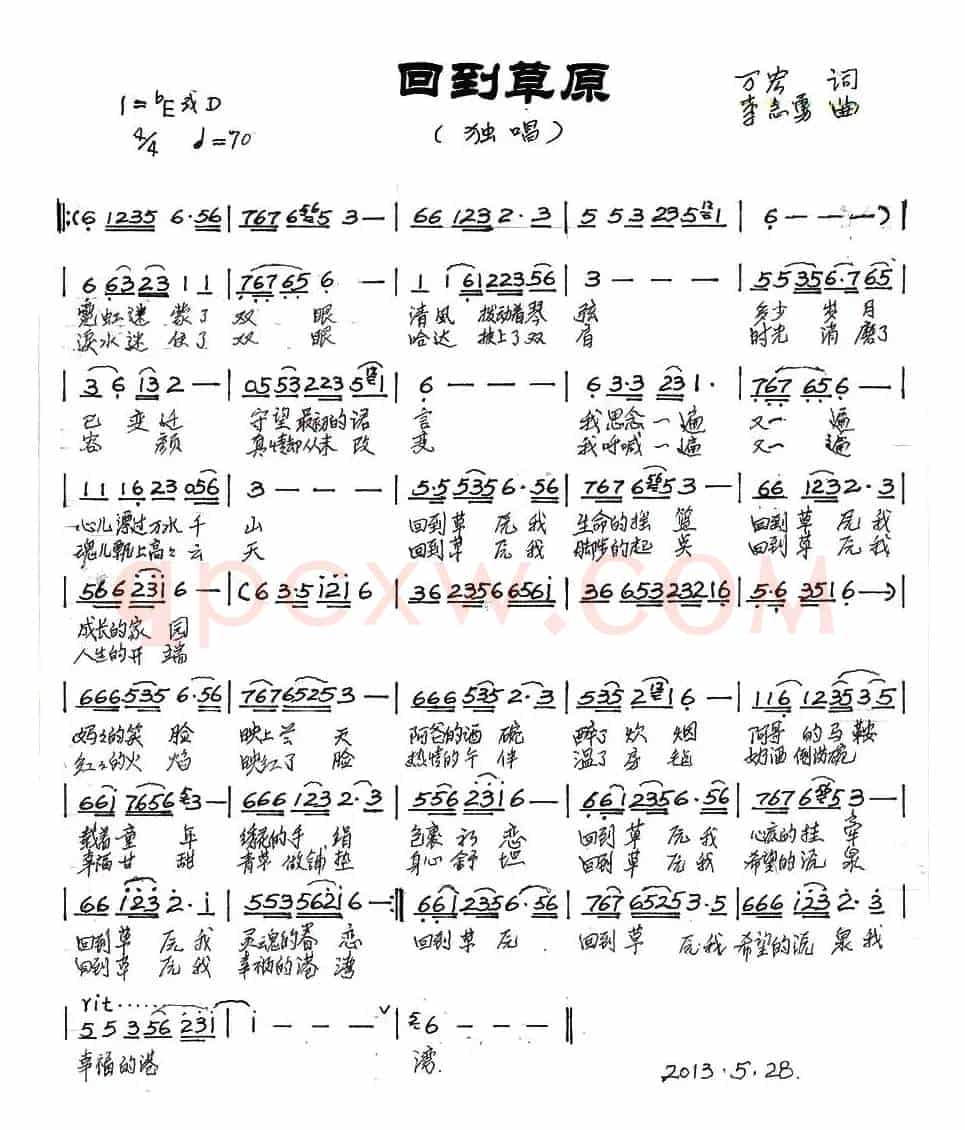 回到草原
(独唱)
万宏 词
李志勇 曲
1=bE或D
4/4 ♩=70
‖:(6 1235 6·56|767 6565 3—|66 123 2·3|5 53 235 1|6———)|
|6 6323 1 1|76765 6—|1 1 6122356|3———|55356·765|
霓虹迷蒙了双眼 清风拨动着琴弦 多少岁月
泪水迷住了双眼 哈达披上了双肩 时光消磨了
|3 6 13 2—|0553 2235 1|6———|6 3·3 231·|767 65 6—|
已变迁 守望最初的诺言 我思念一遍又一遍
容颜 真情却从未改变 我呼喊一遍又一遍
|11 16 23 056|3———|5·5 535 6·56|767 6 53—|66 123 2·3|
心儿漂过万水千山 回到草原我生命的摇篮 回到草原我
魂儿飘上高高云天 回到草原我脚步的起点 回到草原我
|566 231 6—|(6 3·5 i2i 6|36 2356 6561|36 653 23216|5·6 3516—)|
成长的家园
人生的开端
|666535 6·56|76765253—|666 535 2·3|535 2 16—|116 12353 5|
妈妈的笑脸 映上蓝天 阿爸的酒碗 醉了炊烟 阿哥的马鞍
红红的火焰 映红了脸 热情的午伴 温了房毡 奶酒倒满碗
|66i 7656 3—|666 123 2·3|556 2i 6—|66 12356·56|767 6 53—|
载着童年 绣花的手绢 包裹初恋 回到草原我 心底的挂牵
幸福甘甜 青草做铺垫 身心舒坦 回到草原我 希望的流泉
|66 i23 2·i|553562i6—:‖66 12356·56|767 65253·5|666 i23 2·3|
回到草原我灵魂的眷恋 回到草原 回到草原我希望的流泉我
回到草原我幸福的港湾
rit......
|5 5 3 56 23i|i———ˇ|6———‖
幸福的港 湾.
2013.5.28.
qpcxw.com